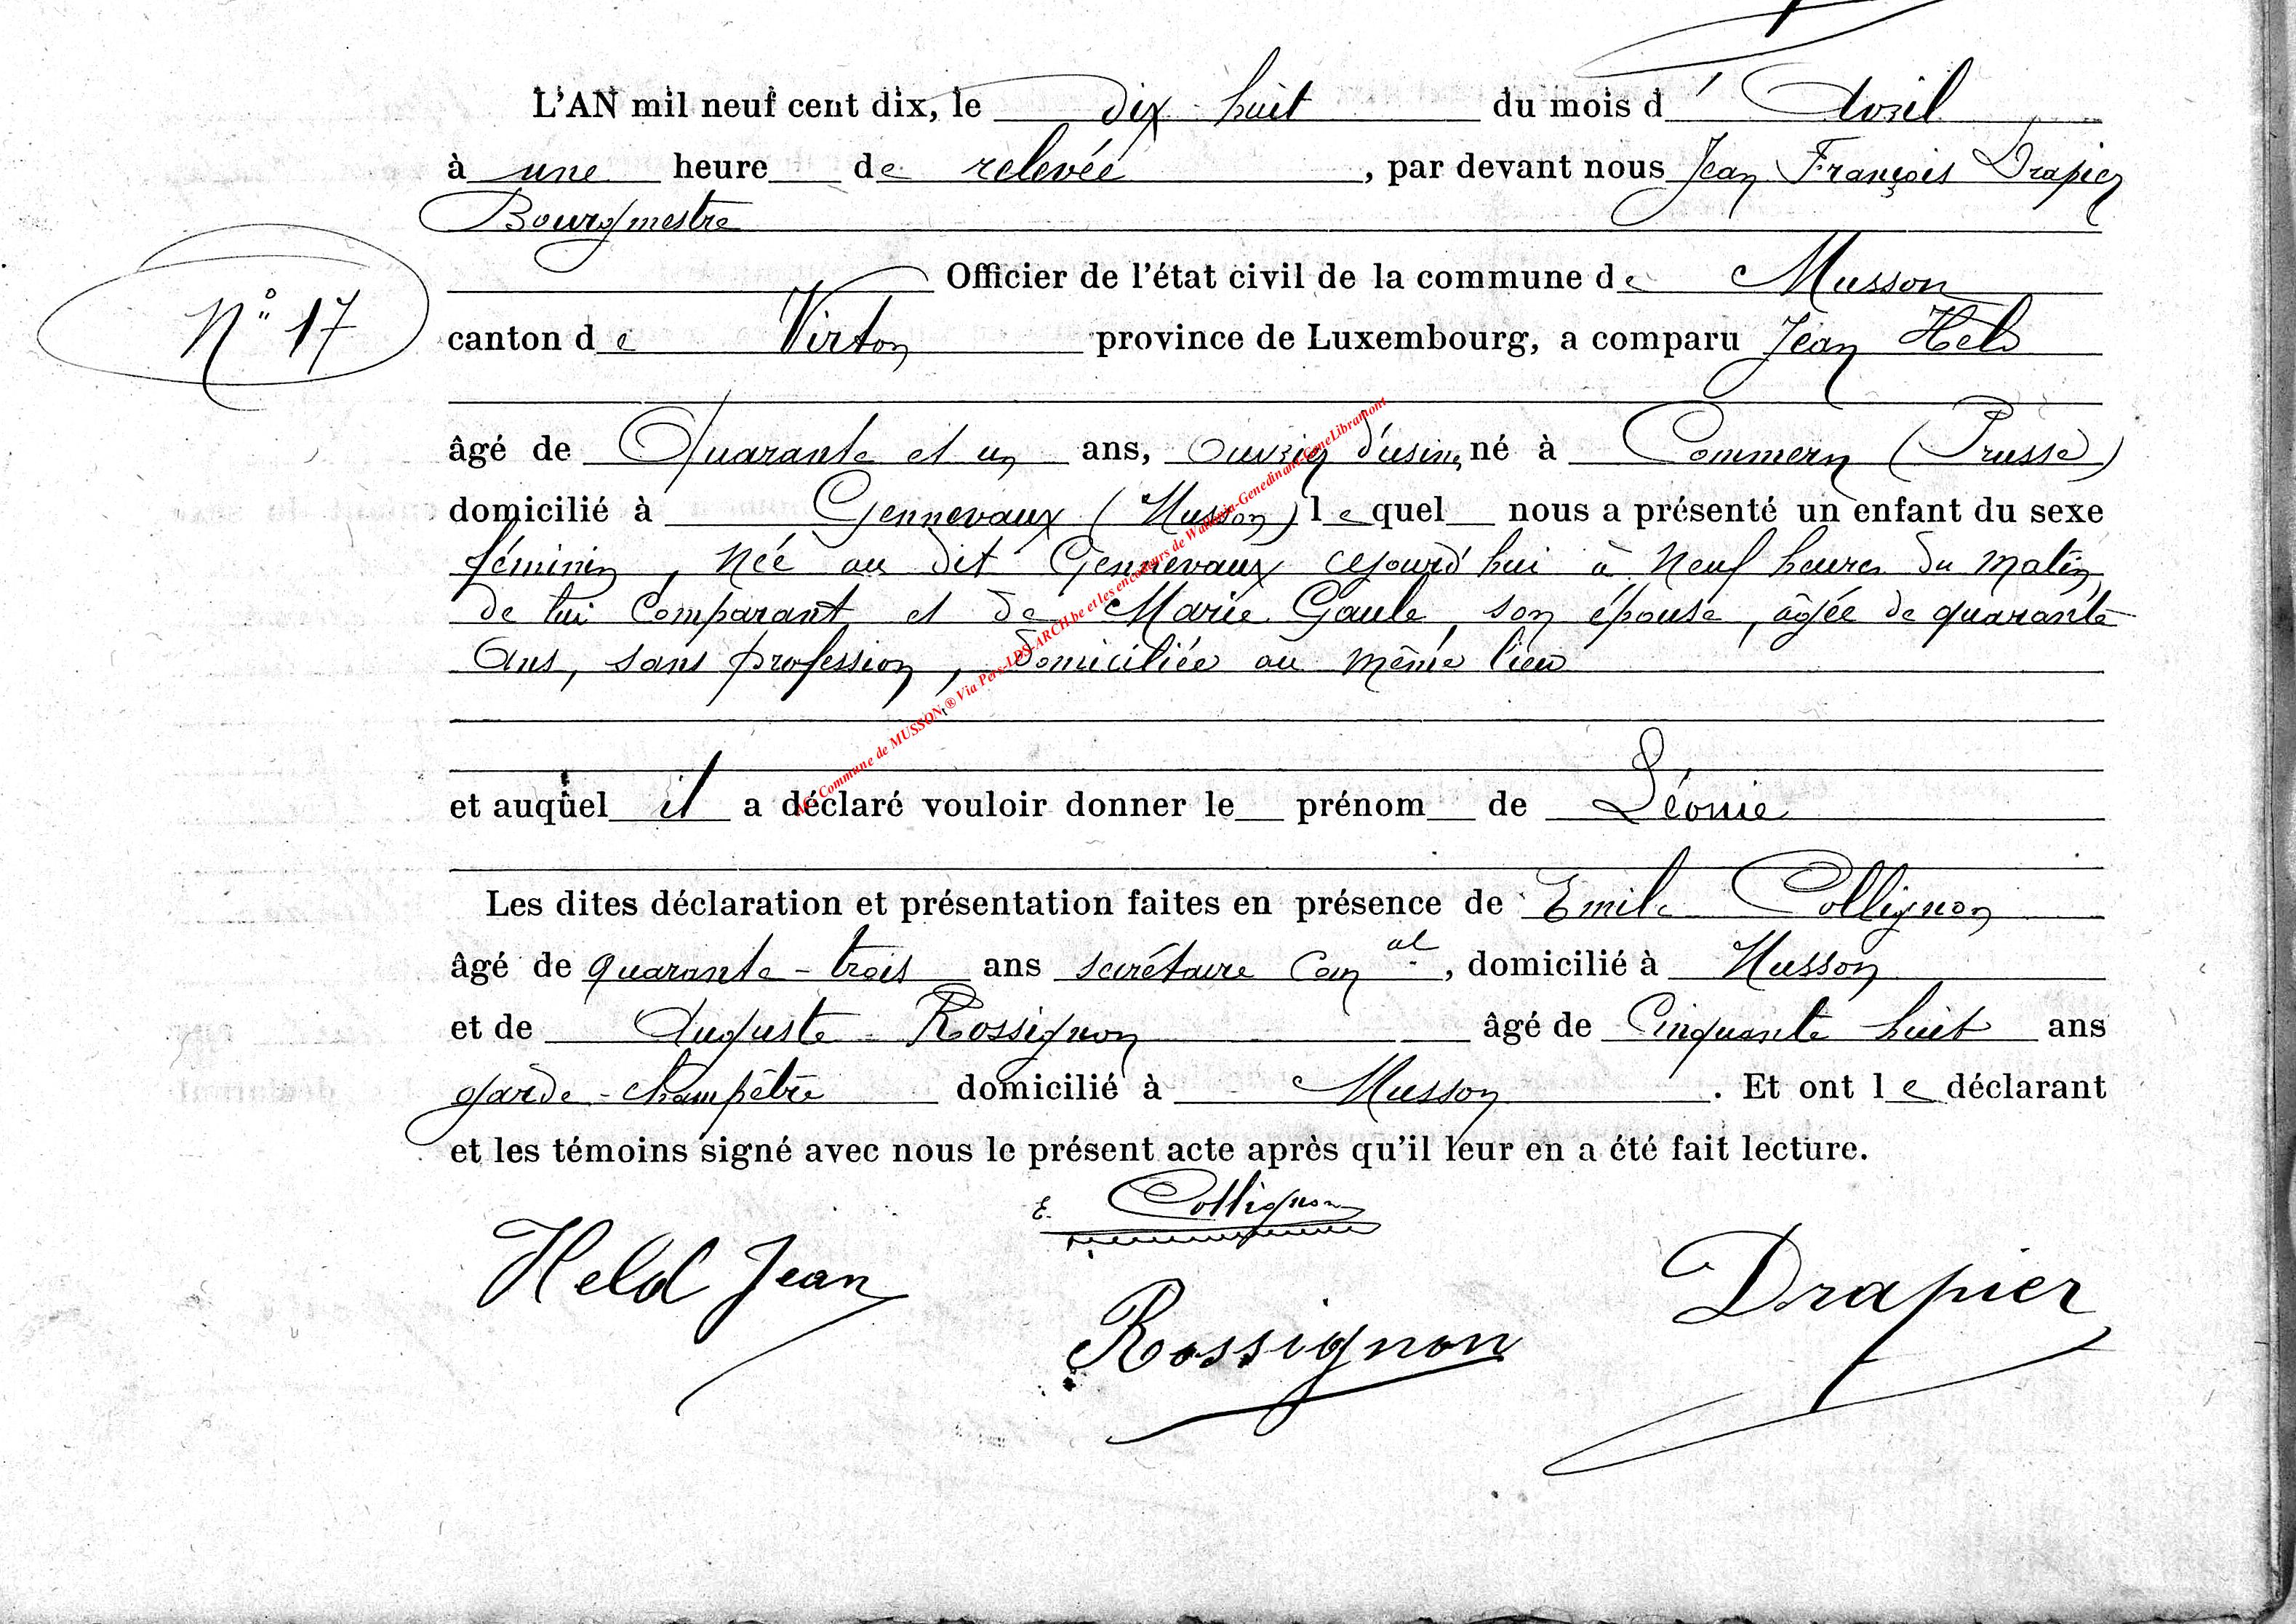 L'AN mil neuf cent dix, le dix-huit du mois d'Avril
à une heure de relevée, par devant nous Jean François Drapier
Bourgmestre
Officier de l'état civil de la commune de Musson
N° 17
canton de Virton province de Luxembourg, a comparu Jean Held
âgé de Quarante et un ans, ouvrier d'usine, né à Commern (Prusse)
domicilié à Gennevaux (Musson) lequel nous a présenté un enfant du sexe
féminin, née au dit Gennevaux cejourd'hui à neuf heures du matin,
de lui comparant et de Marie Gaule, son épouse, âgée de quarante
ans, sans profession, domiciliée au même lieu
et auquel il a déclaré vouloir donner le prénom de Léonie
Les dites déclaration et présentation faites en présence de Emile Collignon
âgé de quarante-trois ans secrétaire Comal, domicilié à Musson
et de Auguste Rossignon âgé de Cinquante huit ans
garde-champêtre domicilié à Musson. Et ont le déclarant
et les témoins signé avec nous le présent acte après qu'il leur en a été fait lecture.
E. Collignon
Held Jean
Drapier
Rossignon
Commune de MUSSON ® Via Pers-LDS-ARCH.be et les encodeurs de Wallonia-Genedinant-GeneLibramont